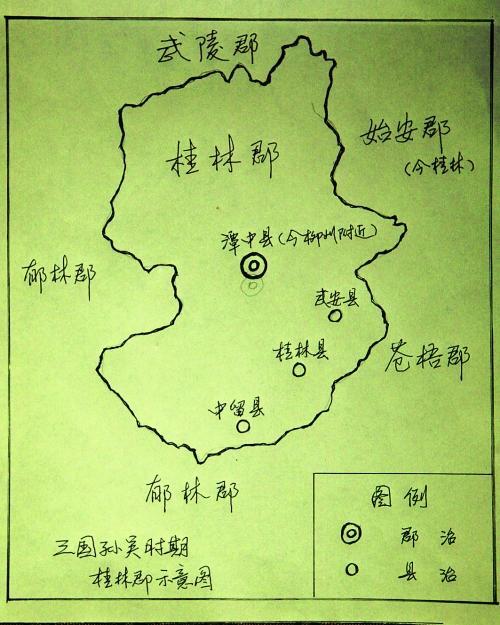 武陵郡
始安郡
(今桂林)
桂林郡
潭中县(今柳州附近)
郁林郡
武安县
桂林县
苍梧郡
中留县
郁林郡
图例
郡治
县治
三国孙吴时期
桂林郡示意图